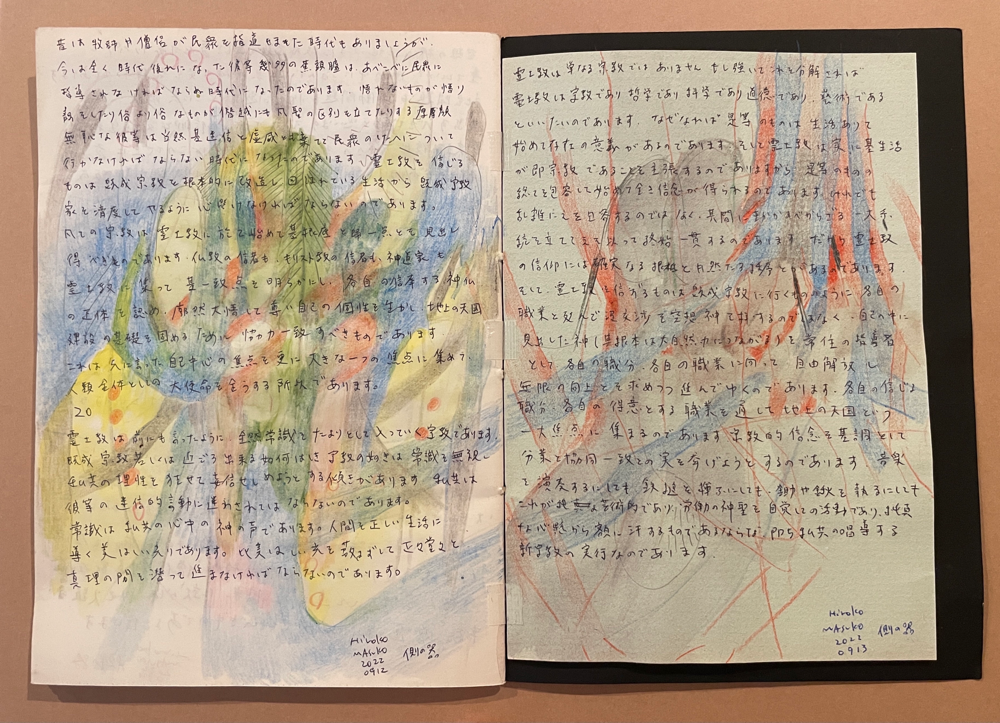 昔は牧師や僧侶が民衆を指導しました時代もありましょうが、
今は全く時代後れになった彼等 は、あべこべに民衆に
指導されなければならぬ時代になったのであります。悟れないものが悟り
説をしたり俗より俗なものが僭越にも 立てたりする厚顔
無恥な彼等は当然是迷信と虚威 を棄てて民衆の について
行かなければならない時代になったのであります。霊土教を信じる
ものは既成宗教を根本的に改造し囚はれている生活から既成宗教
家を済度してやるように心掛けなければならないのであります。
凡ての宗教は霊土教に於て始めて其根底と帰一点とを見出し
得べきものであります。仏教の信者も、キリスト教の信者も、神道家も
霊土教に依って其一致点を明らかにし、各自の信奉する神仏
の正体を認め、廓然大悟して尊い自己の個性を生かし地上の天国
建設の基礎を固めるために協力一致すべきものであります
これは 自己中心の焦点を更に大きな一つの焦点に集めて
人類全体としての大使命を全うする所状であります。
20
霊土教は前にも云ったように 常識をたよりとして入っていく宗教であります。
既成宗教若しくは近ごろ出来る如何はしき宗教の如きは常識を無視し
私共の理性を て妄信せしめようとする傾きがあります 私共は
彼等の迷信的言動に迷わされてはならないのであります。
常識は私共の心中の神の声であります。人間を正しい生活に
導く美はしい光りであります。此美はしい光を 正々堂々と
真理の門を潜って進まなければならないのであります。
Hiroko
MASUKO
2022
0912
側の器
霊土教は単なる宗教ではありません もし強いてこれを分解すれば
霊土教は宗教であり哲学であり科学であり道徳であり、藝術である
といいたいのであります。なぜなれば是等のものは生活ありて
始めて存在の意義があるのであります。そして霊土教は実に其生活
が即宗教であることを主張するのでありますから、是等のもの
総てを包容して始めて全き信念が得られるのであります。けれども
乱雑にこれを包容するのではなく、其間に 一大系
統を立てて 以って終始一貫するのであります だから霊土教
の信仰には確実なる根拠と自然なる秩序とがあるのであります。
そして、霊土教を信ずるものは既成宗教に行くもののように各自の
職業と及んで没交渉な空想神 するのではなく、自己の中に
見出した神(其根本は大自然力につながる)を常住の指導者
として各自の職分、各自の職業に向って、自由解放し
無限の向上とを求めつつ進んでゆくのであります。各自の信じる
職分、各自の得意とする職業を通して地上の天国という
一大焦点に集まるのであります 宗教的信念を基調として
分業と協同一致との実を挙げようとするのであります 音楽
を演奏するにしても鉄鎚を揮ふにしても、鋤や鍬を執るにしても
これが 藝術であり、労働の神聖を自覚しての活動であり、純真
な心態から額に汗するものであるならば、即ち私共の唱導する
新宗教の実行なのであります.
Hiroko
MASUKO
2022
0913
側の器